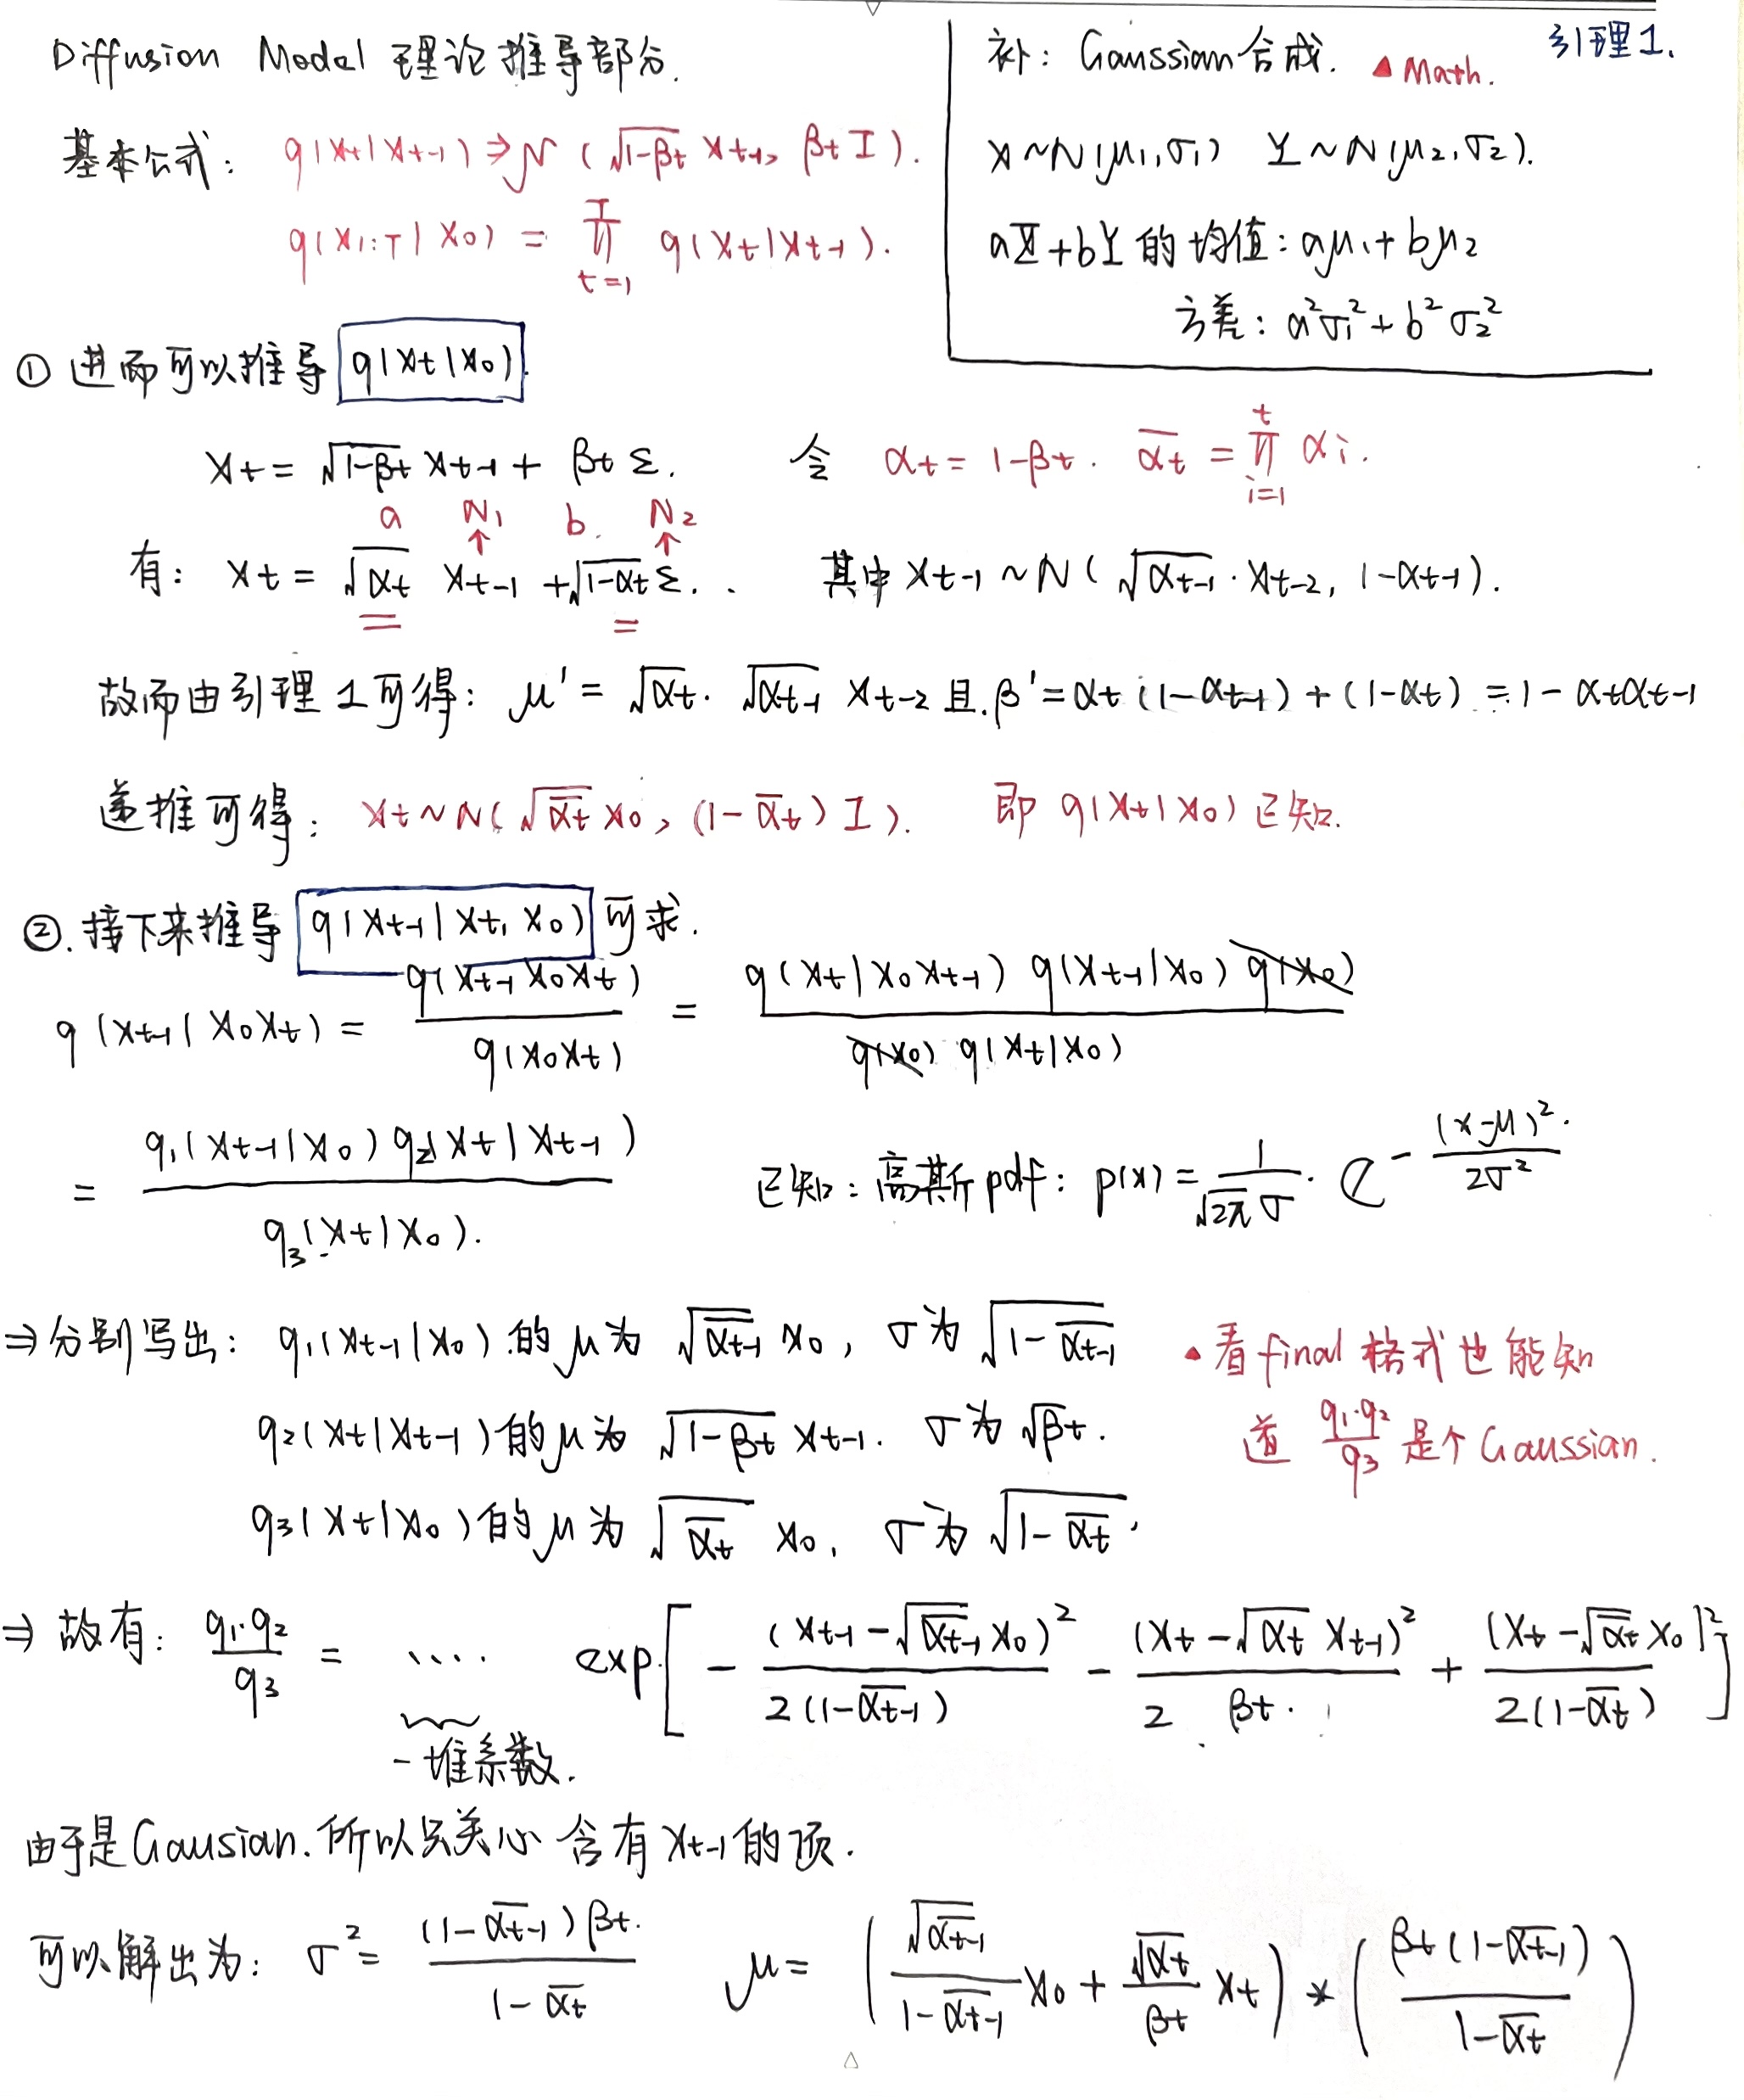 Diffusion Model 理论推导部分.
基本公式: q(xt|xt-1) ⇒ N (√(1-βt) xt-1, βt I).
q(x1:T|x0) = ∏_{t=1}^{T} q(xt|xt-1).
补: Gaussian合成. ▲ Math. 引理1.
X~N(μ1,σ1) Y~N(μ2,σ2).
aX+bY 的均值: aμ1+bμ2
方差: a²σ1²+b²σ2²
① 进而可以推导 q(xt|x0).
xt = √(1-βt) xt-1 + βt ε. 令 αt = 1-βt. ᾱt = ∏_{i=1}^{t} αi.
a N1 b. N2
↑ ↑
有: xt = √αt xt-1 + √(1-αt) ε. 其中 xt-1 ~ N(√αt-1 · xt-2, 1-αt-1).
故而由引理1可得: μ' = √αt · √αt-1 xt-2 且. β' = αt(1-αt-1)+(1-αt) = 1-αtαt-1
递推可得: xt~N(√ᾱt x0, (1-ᾱt) I). 即 q(xt|x0) 已知.
②. 接下来推导 q(xt-1|xt, x0) 可求.
q(xt-1|x0xt) = q(xt-1x0xt) / q(x0xt) = q(xt|x0xt-1) q(xt-1|x0) q(x0) / q(x0) q(xt|x0)
= q1(xt-1|x0) q2(xt|xt-1) / q3(xt|x0). 已知: 高斯pdf: p(x) = 1/(√2π σ) · e^{-(x-μ)²/2σ²}
⇒ 分别写出: q1(xt-1|x0) 的μ为 √ᾱt-1 x0, σ为 √(1-ᾱt-1)
q2(xt|xt-1) 的μ为 √(1-βt) xt-1. σ为 √βt.
q3(xt|x0) 的μ为 √ᾱt x0, σ为 √(1-ᾱt).
▲看final 格式也能知
道 q1·q2/q3 是个Gaussian.
⇒ 故有: q1·q2/q3 = .... exp[ - (xt-1-√ᾱt-1 x0)² / 2(1-ᾱt-1) - (xt-√αt xt-1)² / 2 βt. + (xt-√ᾱt x0)² / 2(1-ᾱt) ]
一堆系数.
由于是Gausian. 所以只关心 含有xt-1的项.
可以解出为: σ² = (1-ᾱt-1)βt. / 1-ᾱt μ = ( √ᾱt-1/(1-ᾱt-1) x0 + √αt/βt xt ) * ( βt(1-ᾱt-1) / 1-ᾱt )